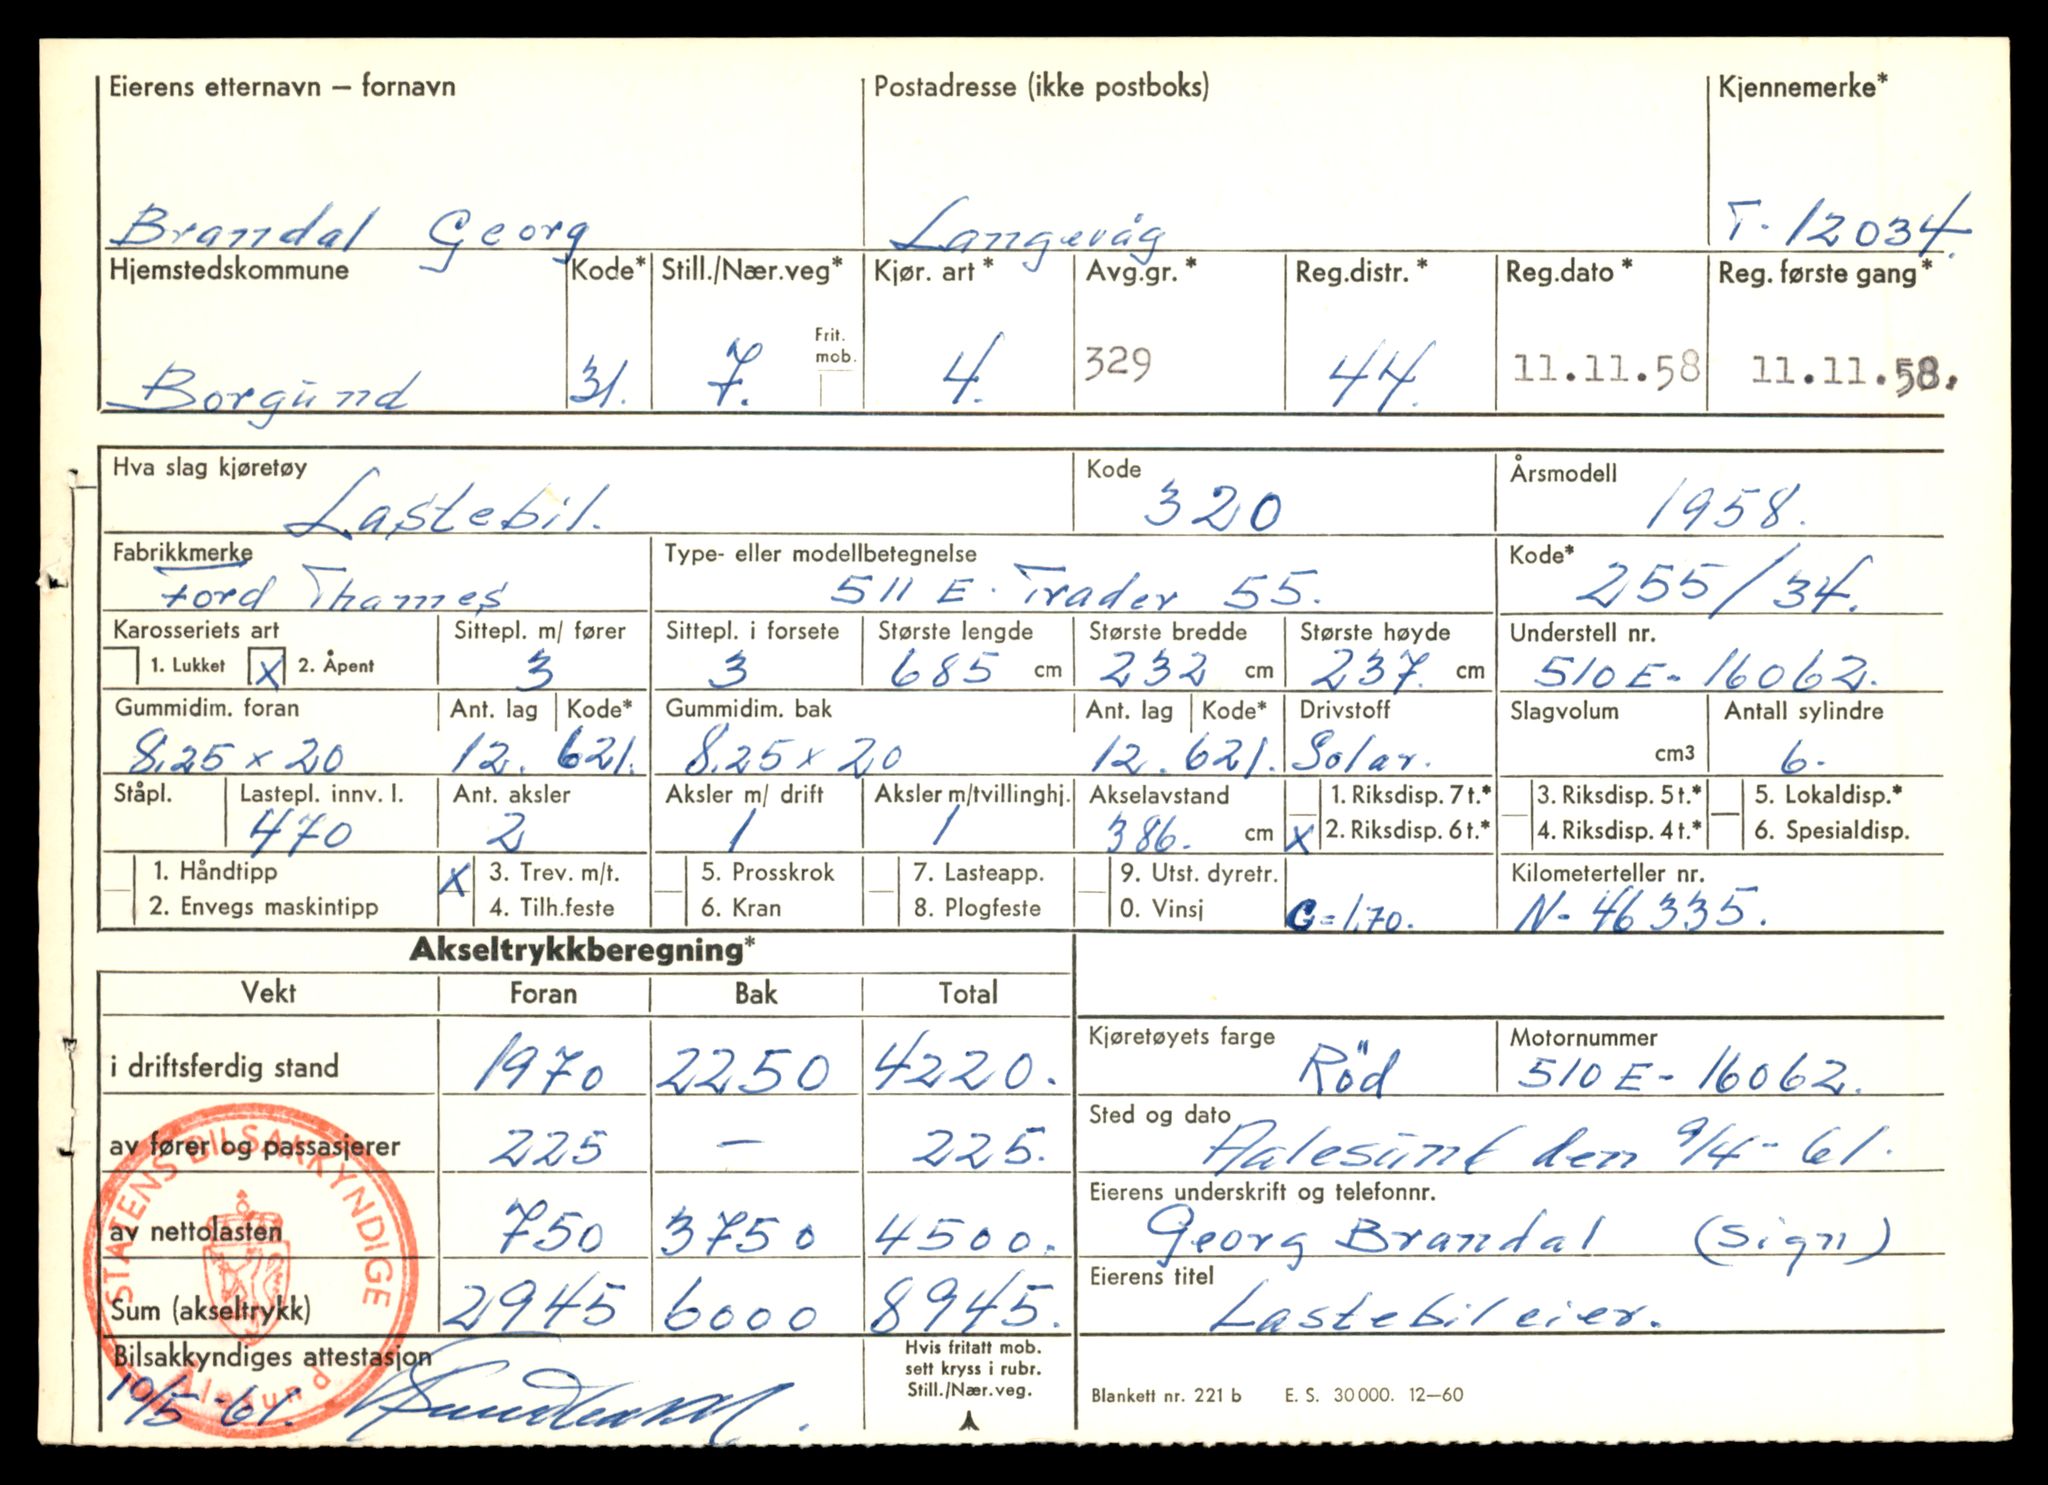 Eierens etternavn – fornavn Postadresse (ikke postboks) Kjennemerke*
Brandal Georg Langevåg T-12034.
Hjemstedskommune Kode* Still./Nær.veg* Kjør. art* Avg.gr.* Reg.distr.* Reg.dato* Reg. første gang*
Frit. mob.
Borgund 31. 7. 4. 329 44. 11.11.58 11.11.58.
Hva slag kjøretøy Kode Årsmodell
Lastebil. 320 1958.
Fabrikkmerke Type- eller modellbetegnelse Kode*
Ford Thames 511 E. Trader 55. 255/34.
Karosseriets art Sittepl. m/ fører Sittepl. i forsete Største lengde Største bredde Største høyde Understell nr.
1. Lukket X 2. Åpent 3 3 685 cm 232 cm 237. cm 510 E- 16062.
Gummidim. foran Ant. lag Kode* Gummidim. bak Ant. lag Kode* Drivstoff Slagvolum Antall sylindre
8,25 x 20 12. 621. 8,25 x 20 12. 621. Solar. cm3 6.
Ståpl. Lastepl. innv. l. Ant. aksler Aksler m/ drift Aksler m/tvillinghj. Akselavstand 1. Riksdisp. 7 t.* 3. Riksdisp. 5 t.* 5. Lokaldisp.*
470 2 1 1 386. cm X 2. Riksdisp. 6 t.* 4. Riksdisp. 4 t.* 6. Spesialdisp.
1. Håndtipp X 3. Trev. m/t. 5. Prosskrok 7. Lasteapp. 9. Utst. dyretr. Kilometerteller nr.
2. Envegs maskintipp 4. Tilh.feste 6. Kran 8. Plogfeste 0. Vinsj G=1,70. N- 46335.
Akseltrykkberegning*
Vekt Foran Bak Total
Kjøretøyets farge Motornummer
i driftsferdig stand 1970 2250 4220. Röd 510 E- 16062.
Sted og dato
av fører og passasjerer 225 – 225. Aalesund den 9/4-61.
Eierens underskrift og telefonnr.
av nettolasten 750 3750 4500. Georg Brandal (sign)
Eierens titel
Sum (akseltrykk) 2945 6000 8945. Lastebileier.
Bilsakkyndiges attestasjon Hvis fritatt mob.
sett kryss i rubr.
Still./Nær.veg.
10/5-61.
Blankett nr. 221 b E. S. 30000. 12–60
STATENS BILSAKKYNDIGE
Ålesund